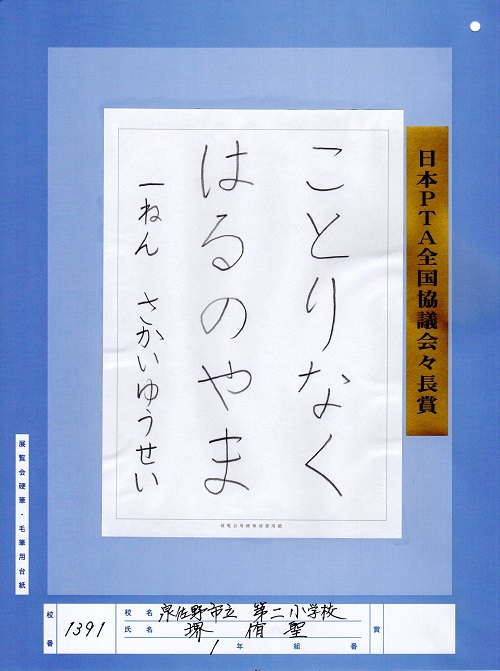 日本PTA全国協議会々長賞
ことりなく
はるのやま
一ねん さかいゆうせい
展覧会硬筆・毛筆用台紙
校番 1391
校名 泉佐野市立 第二小学校
氏名 堺 侑聖
1年 組 番
賞